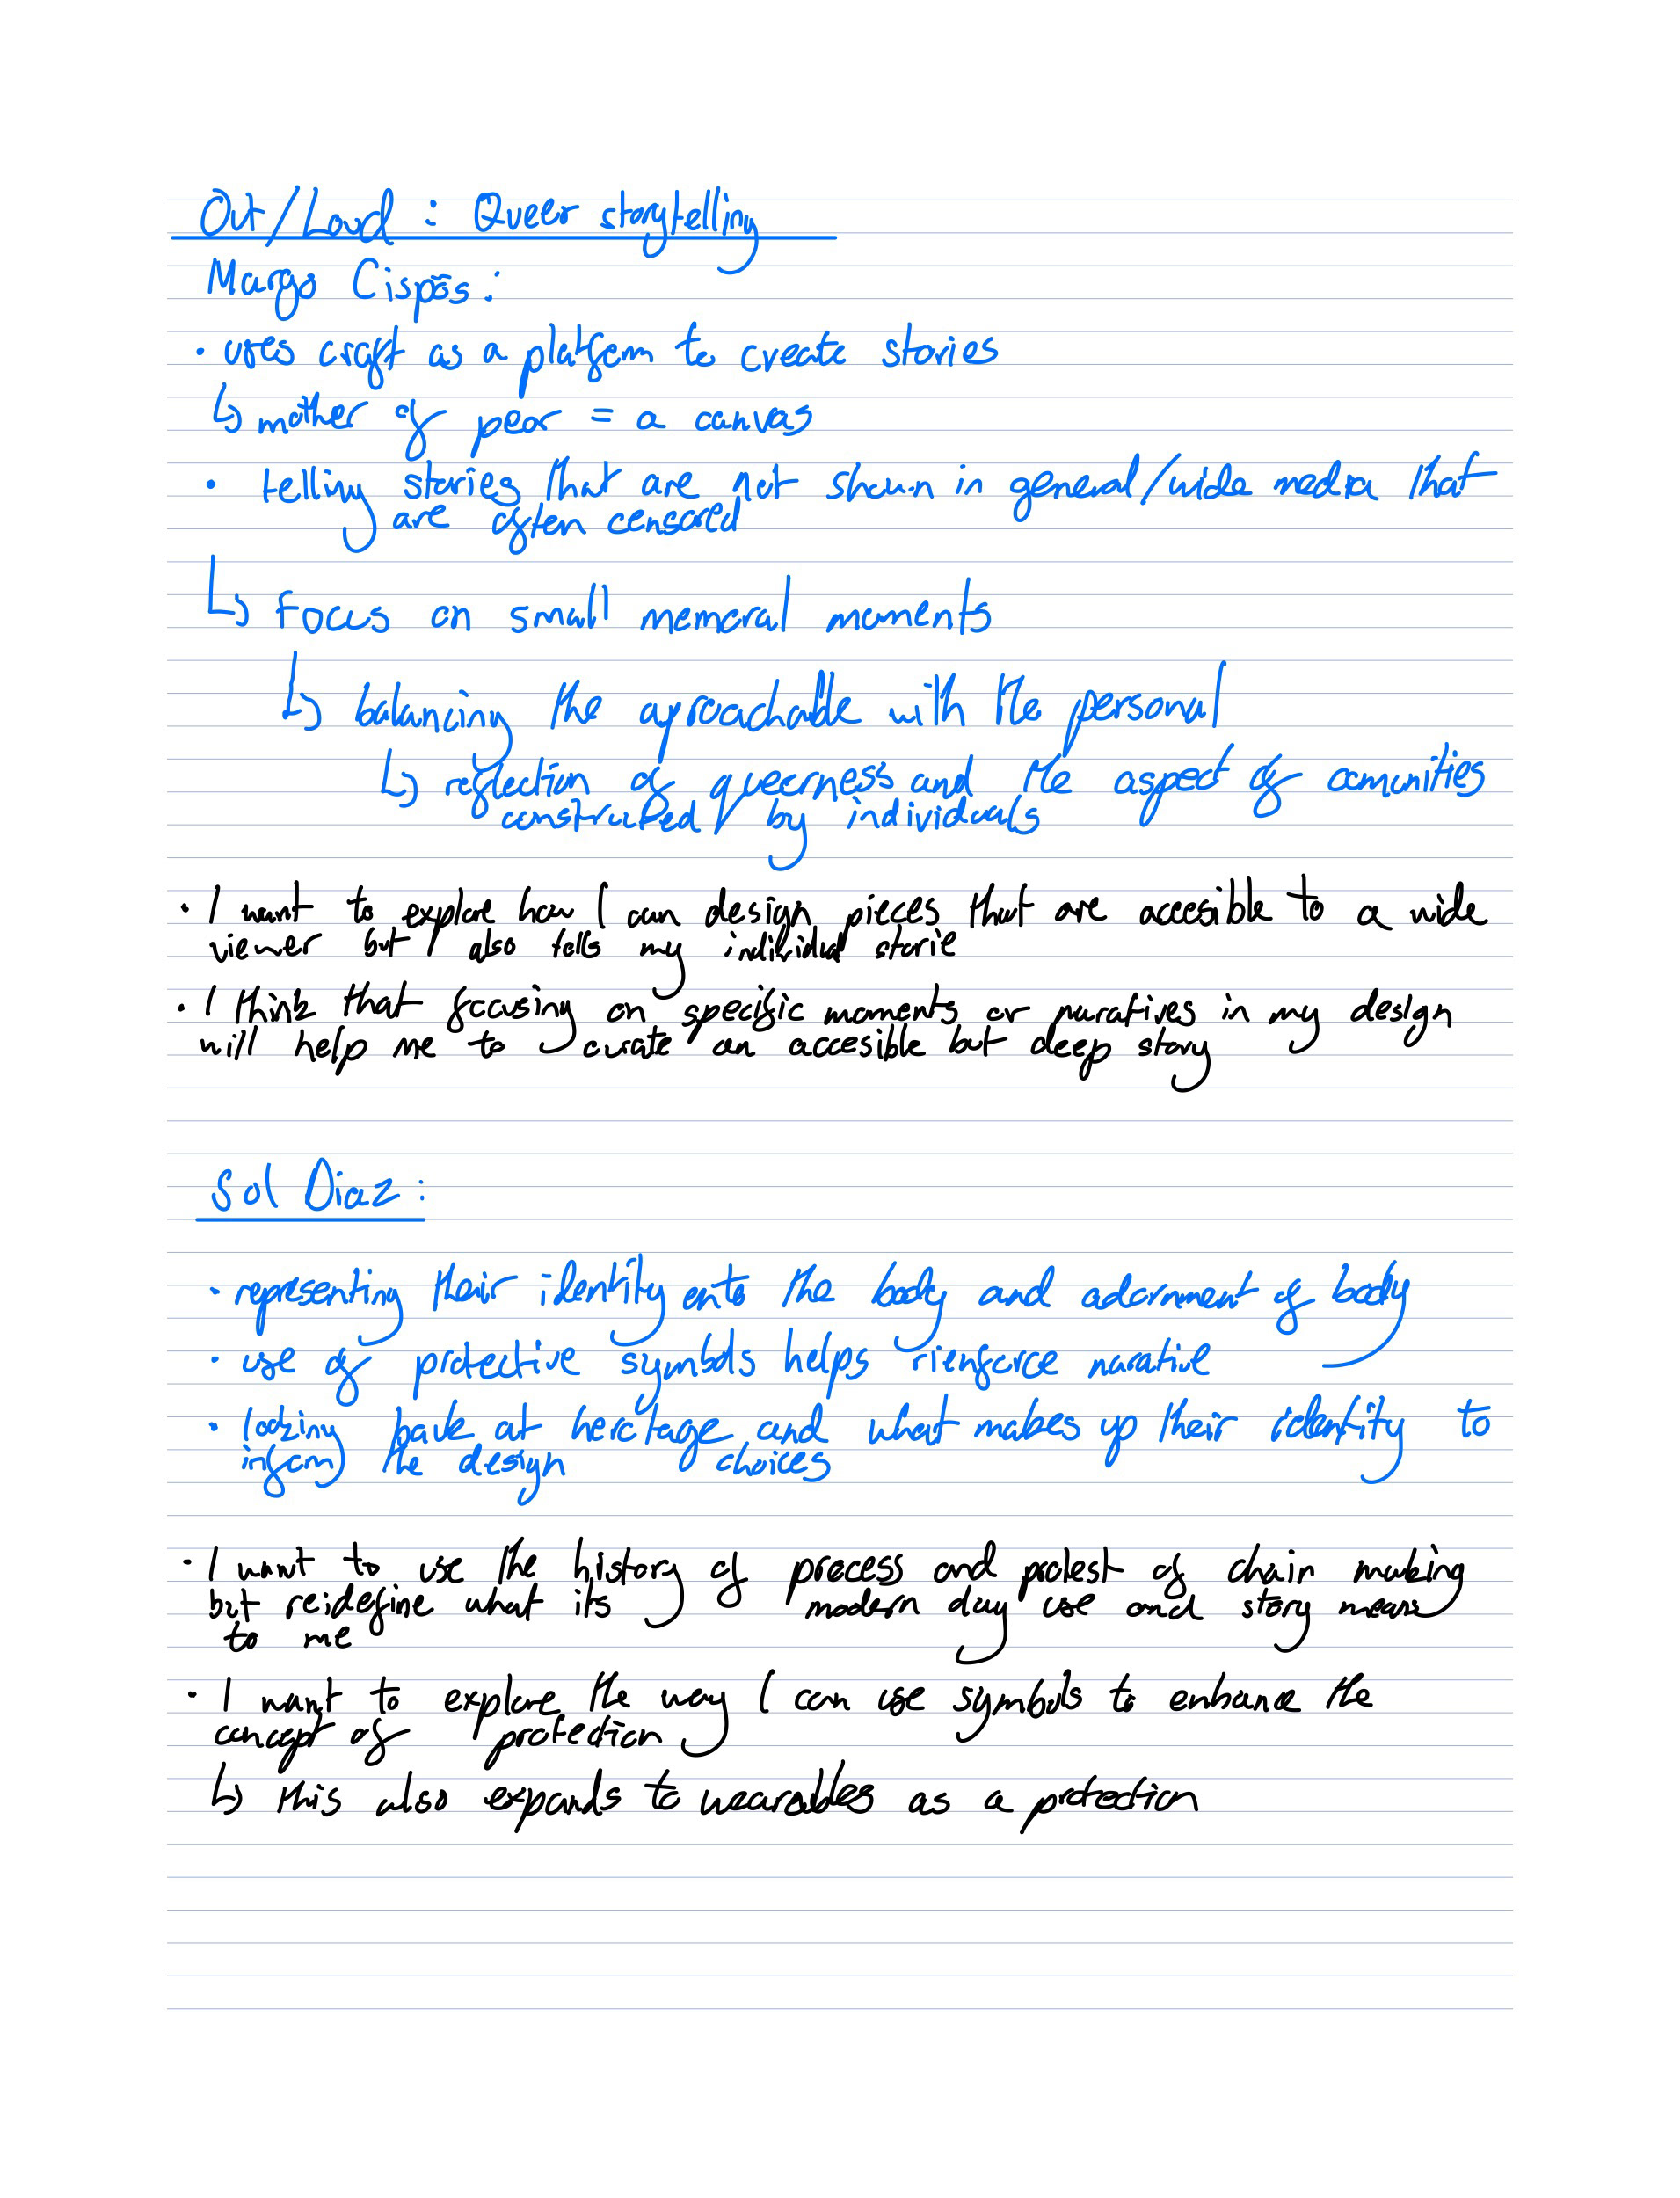 Out/Loud : Queer storytelling
Margo Cispōs :
· uses craft as a platform to create stories
↳ mother of pear = a canvas
· telling stories that are not shown in general/wide media that
are often censored
↳ focus on small memoral moments
↳ balancing the aproachable with the personal
↳ reflection of queerness and the aspect of comunities
constructed by individuals
· I want to explore how I can design pieces that are accesible to a wide
viewer but also tells my individual storie
· I think that focusing on specific moments or naratives in my design
will help me to curate an accesible but deep story
Sol Diaz :
· representing their identity onto the body and adornment of body
· use of protective symbols helps rienforce narative
· looking back at heritage and what makes up their identity to
inform the design choices
· I want to use the history of process and protest of chain making
but reidefine what its modern day use and story means
to me
· I want to explore the way I can use symbols to enhance the
concept of protection
↳ this also expands to wearables as a protection